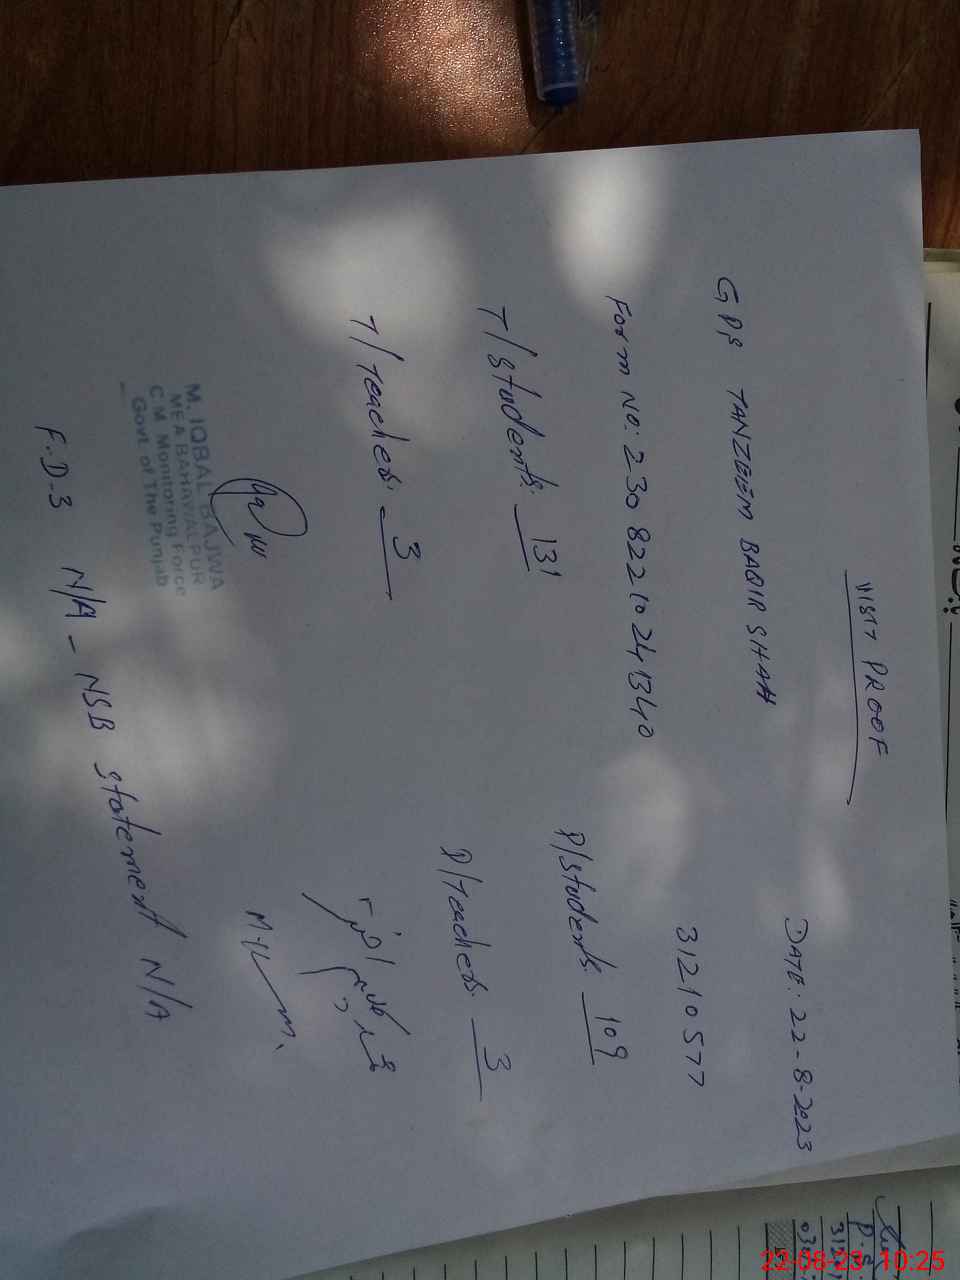 VISIT PROOF
DATE: 22-8-2023
GPS TANZEEM BAQIR SHAH
31210577
Form No: 23082210241340
T/students: 131 P/students: 109
T/teachers: 3 P/teachers: 3
M. IQBAL BAJWA
MEA BAHAWALPUR
C.M Monitoring Force
Govt. of The Punjab
F.D-3 N/A - NSB statement N/A
22-08-23 10:25